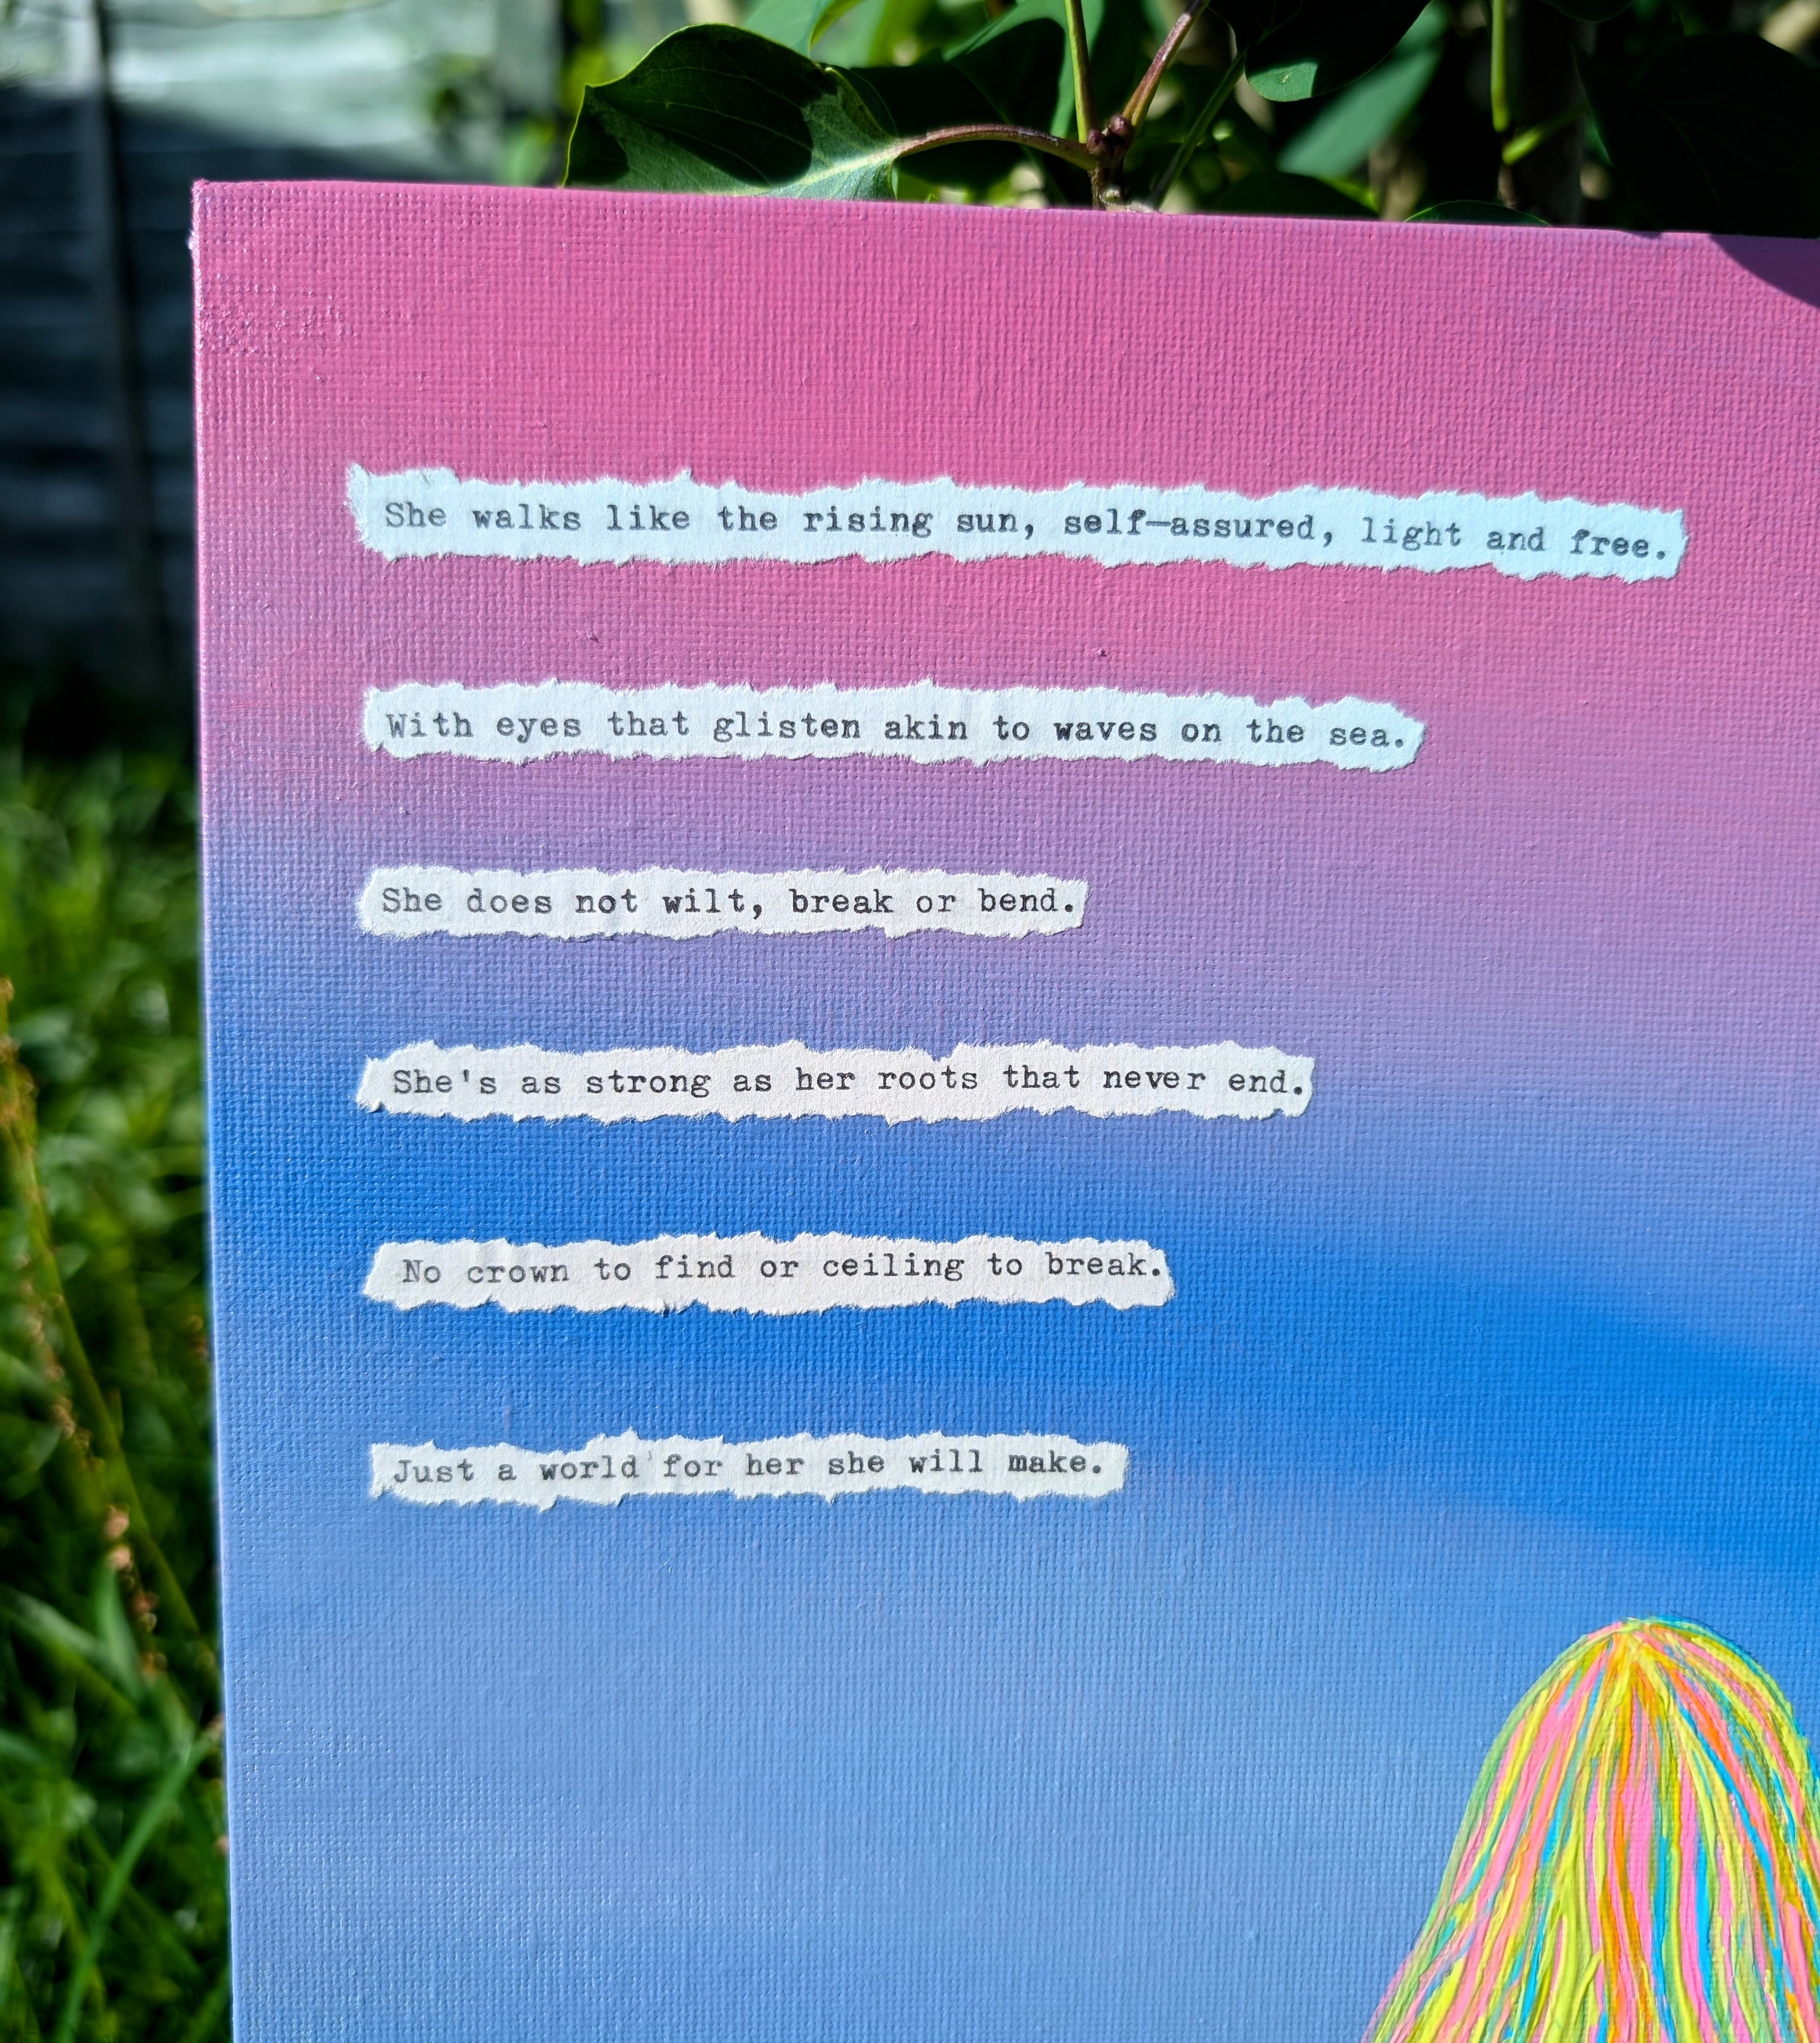 She walks like the rising sun, self-assured, light and free.
With eyes that glisten akin to waves on the sea.
She does not wilt, break or bend.
She's as strong as her roots that never end.
No crown to find or ceiling to break.
Just a world for her she will make.